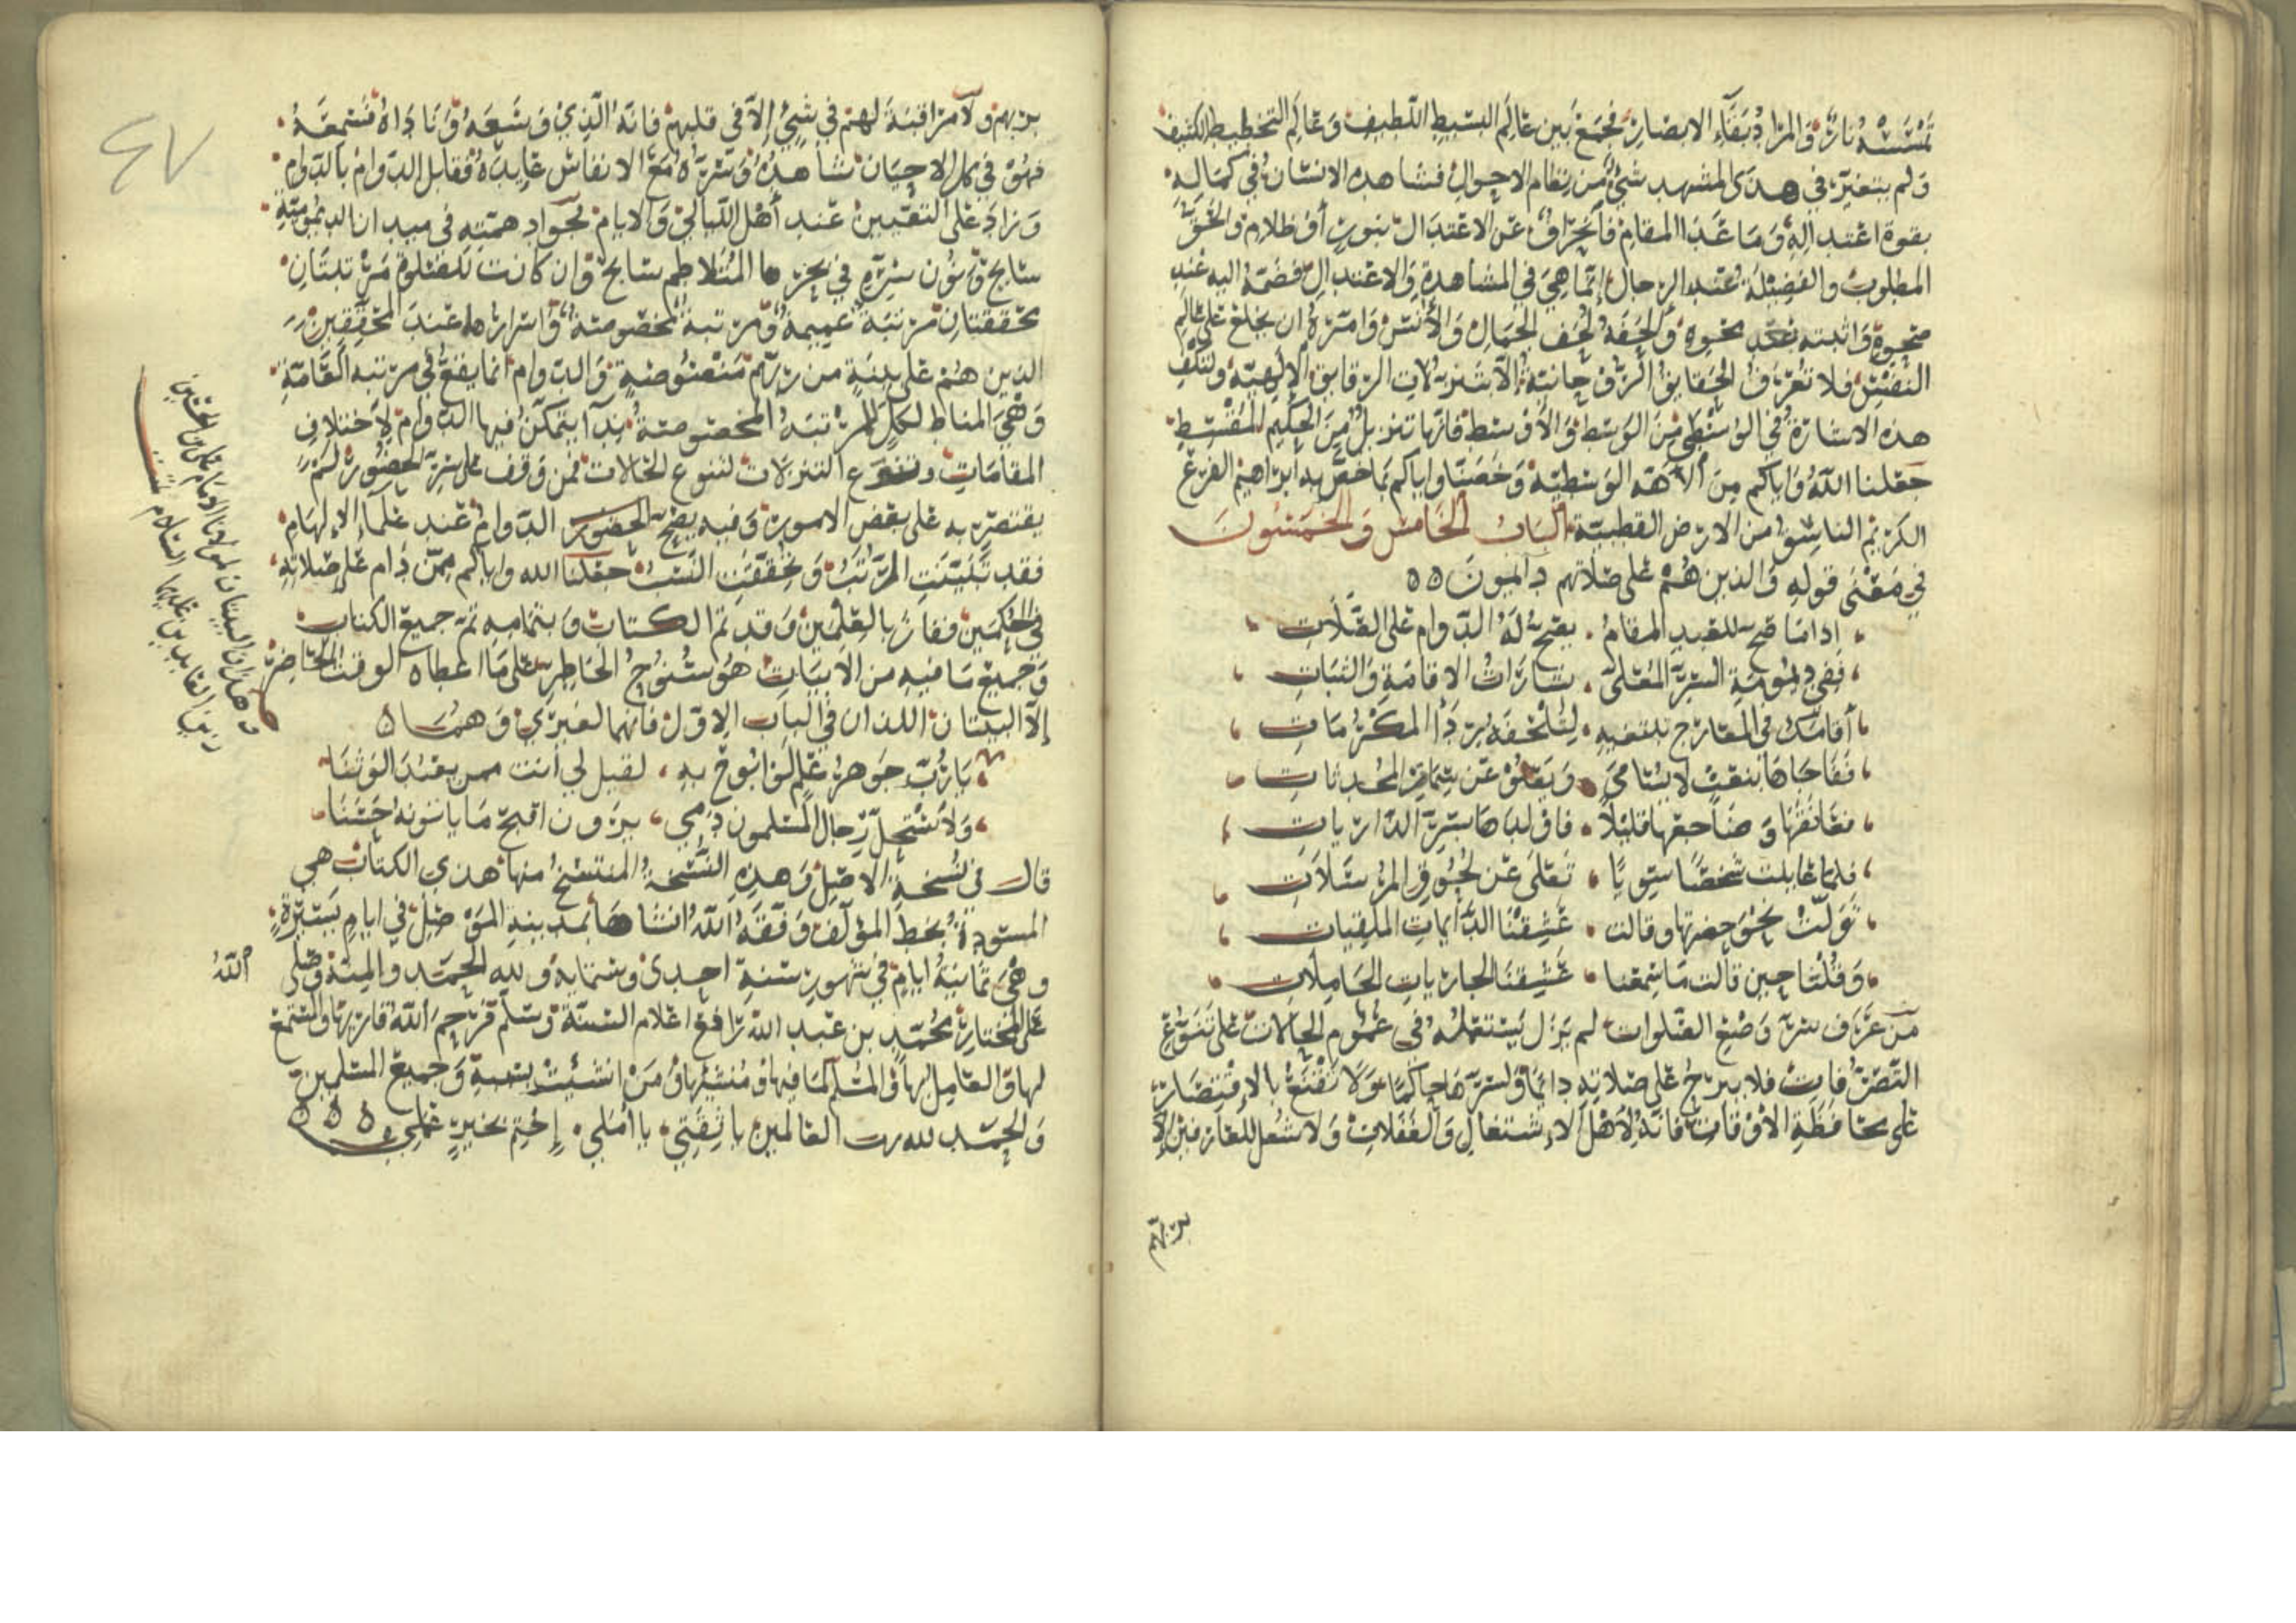 تمسسه نار والمراد بقاء الابصار فجمع بين عالم البسيط اللطيف وعالم التخطيط الكثيف
ولم يتغير في هدى المشهد شيء من نظام الاحوال فشاهد الانسان في كماله
بقوة اعتداله وما عدا المقام فانحراف عن الاعتدال بنور أو ظلام والحق
المطلوب والفضيلة عند الرجال إنما هي في المشاهدة والاعتدال فضمه اليه عند
صحوه واثبته بعد محوه والحفه لحف الجمال والأنس وامره ان يخلع على عالم
النفس فلا تعرف الحقايق الروحانية إلا بتنزلات الرقايق الإلهية ولتكف
هذه الاشارة في الوسطى من الوسط والأوسط فانها تنزيل من الحكيم المقسط
جعلنا الله واياكم من الأمة الوسطية وخصنا واياكم بما خص به ابراهيم الفرع
الكريم الناشئ من الارض القطبية الباب الخامس والخمسون
في معنى قوله والذين هم على صلاتهم دائمون ه ه
اذا ما صح للعبد المقام يصح له الدوام على الصلات
ففي ديمومة السر المعلى بشارات الاقامة والثبات
أقامك في المعارج لتلحفه بردا المكرمات
ففاجاها بنعت لا يسامى ويعلو عن سمات المحدثات
فعانقها وضاجعها قليلا فاولدها بسر الذاريات
فلما عاينت شخصا سويا تعلى عن لحوق المرسلات
تولت نحو حضرتها وقالت عشقنا الدائمات الملقيات
وقلنا حين قالت ما سمعنا عشقنا الجاريات الحاملات
من عرف سر وضع الصلوات لم يزل يستعمله في عموم الحالات على تنوع
التصرفات فلا يبرح على صلاته دائما ولسرها حاكما ولا تقنع بالاقتصار
على محافظة الاوقات فانه لأهل الاشتغال والغفلات ولا شغل للعارفين إلا
بربهم
بربهم ولا مراقبة لهم في شيء إلا في قلبهم فانه الذي وسعه وناداه فسمعه
فهو في كل الاحيان شاهده وسره مع الانفاس عابده فقابل الدوام بالدوام
وزاد على التعيين عند أهل الليالي والايام فجواد همته في ميدان الديمومية
سابح ونون سره في بحرها المتلاطم سابح وان كانت للصلوة مرتبتان
محققتان مرتبة عميمة ومرتبة مخصوصة واسرارها عند المحققين
الذين هم على بينة من ربهم منصوصة والدوام انما يقع في مرتبة العامة
وهي المناط لكل المرتبة المخصوصة بدا يتمكن فيها الدوام لاختلاف
المقامات وتنوع التنزلات لتنوع الحالات فمن وقف على سر الحضور لم
يقتصر به على بعض الامور وفيه يصح الحضور الدوام عند علماء الإلهام
فقد تبينت المراتب وتحققت النسب جعلنا الله واياكم ممن دام على صلاته
في الحكمين ففاز بالعلمين وقد تم الكتاب وبتمامه تم جميع الكتاب
وجميع ما فيه من الابيات هو سنوح الخاطر على ما اعطاه الوقت الحاضر
إلا البيتان اللذان في الباب الاول فانهما لغيري وهما ه
يا رب جوهر علم لو ابوح به لقيل لي أنت ممن يعبد الوثنا
ولاستحل رجال مسلمون دمي يرون اقبح ما ياتونه حسنا
قال في نسخة الاصل وهذه النسخة المنتسخ منها هذي الكتاب هي
المسودة بخط المؤلف وفقه الله انشاها بمدينة الموصل في ايام يسيرة
وهي ثمانية ايام في شهور سنة احدى وستماية ولله الحمد والمنة وصلى الله
على المختار محمد بن عبد الله رافع اعلام السنة وسلم فرحم الله قاريها والمستمع
لها والعامل بها والمسلم لما فيها ومنشئها ومن انشئت بسببه وجميع المسلمين
والحمد لله رب العالمين يا ثقتي يا أملي إختم بخير عملي ه ه ه
وهذان البيتان لمولانا الامام علي بن الحسين
زين العابدين عليهما السلام
٤٧